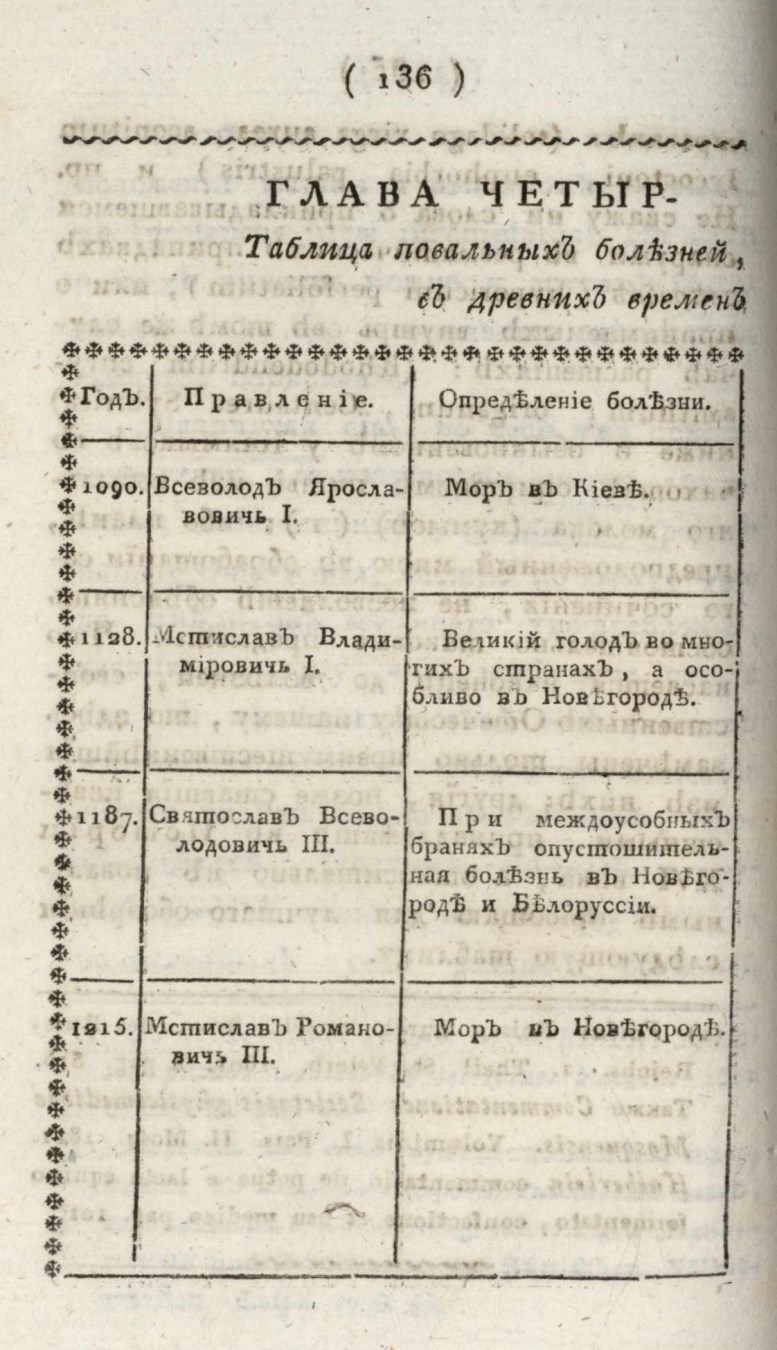 ( 136 )
ГЛАВА ЧЕТЫР-
Таблица повальныхЪ болѣзней,
сЪ древнихЪ временЪ
ГодЪ. Правленіе. ОпредѢленіе болѣзни.
1090. ВсеволодЪ Яросла- МорЪ вЪ КіевѢ.
вовичь I.
1128. МстиславЪ Влади- Великій голодЪ во мно-
міровичь I. гихЪ странахЪ, а осо-
бливо вЪ НовѢгородѢ.
1187. СвятославЪ Всево- При междоусобныхЪ
лодовичь III. браняхЪ опустошитель-
ная болѢзнь вЪ НовѢго-
родѢ и БѢлоруссіи.
1215. МстиславЪ Романо- МорЪ вЪ НовѢгородѢ.
вичь III.